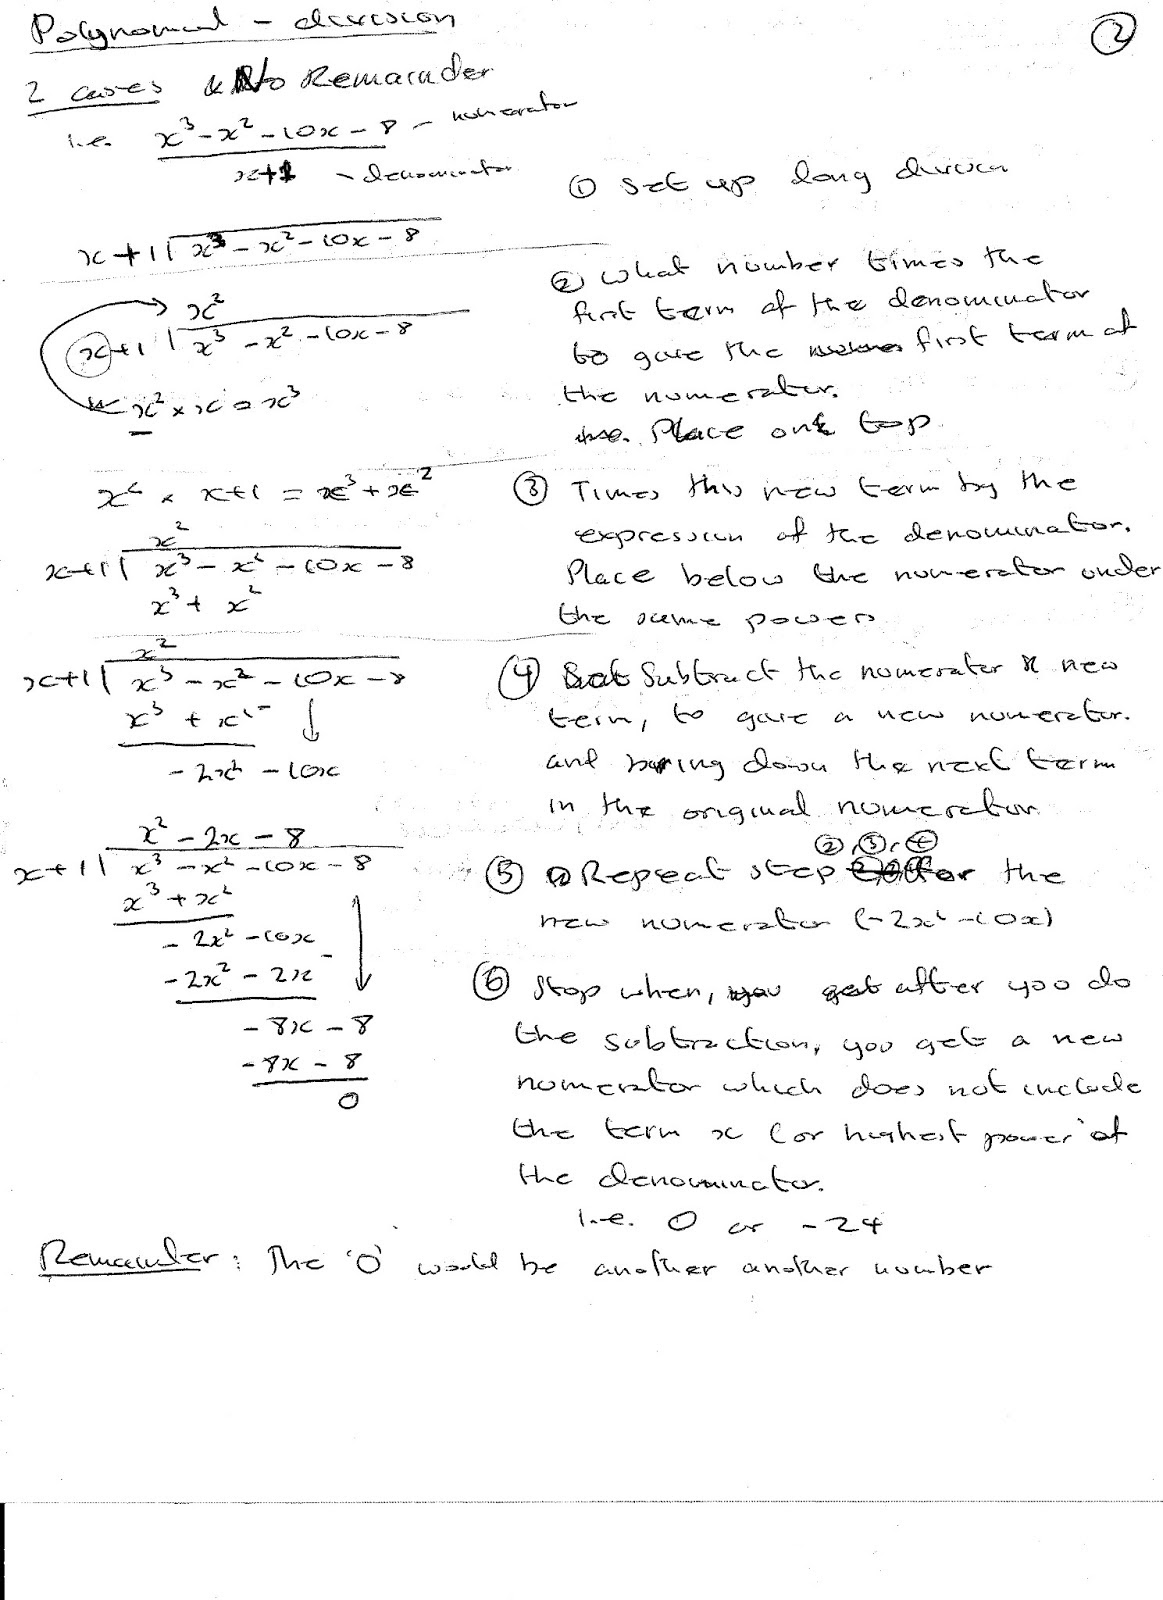 Polynomial - division
2
2 cases & No Remainder
i.e. x³ - x² - 10x - 8 - numerator
x+1 - denominator
① Set up long division
x+1 | x³ - x² - 10x - 8
② What number times the
first term of the denominator
to gave the first term of
the numerator.
Place on top
x²
x+1 | x³ - x² - 10x - 8
x² × x = x³
x² × x+1 = x³ + x²
③ Times this new term by the
expression of the denominator.
Place below the numerator under
the same powers
x²
x+1 | x³ - x² - 10x - 8
x³ + x²
④ Subtract the numerator & new
term, to gave a new numerator.
and bring down the next term
in the original numerator
x²
x+1 | x³ - x² - 10x - 8
x³ + x² -
-2x² - 10x
②,③,④
⑤ Repeat step for the
new numerator (-2x² - 10x)
x² - 2x - 8
x+1 | x³ - x² - 10x - 8
x³ + x²
- 2x² - 10x
- 2x² - 2x -
- 8x - 8
- 8x - 8
0
⑥ Stop when, after you do
the subtraction, you get a new
numerator which does not include
the term x (or highest power of
the denominator.
i.e. 0 or -24
Remainder: The '0' would be another another number